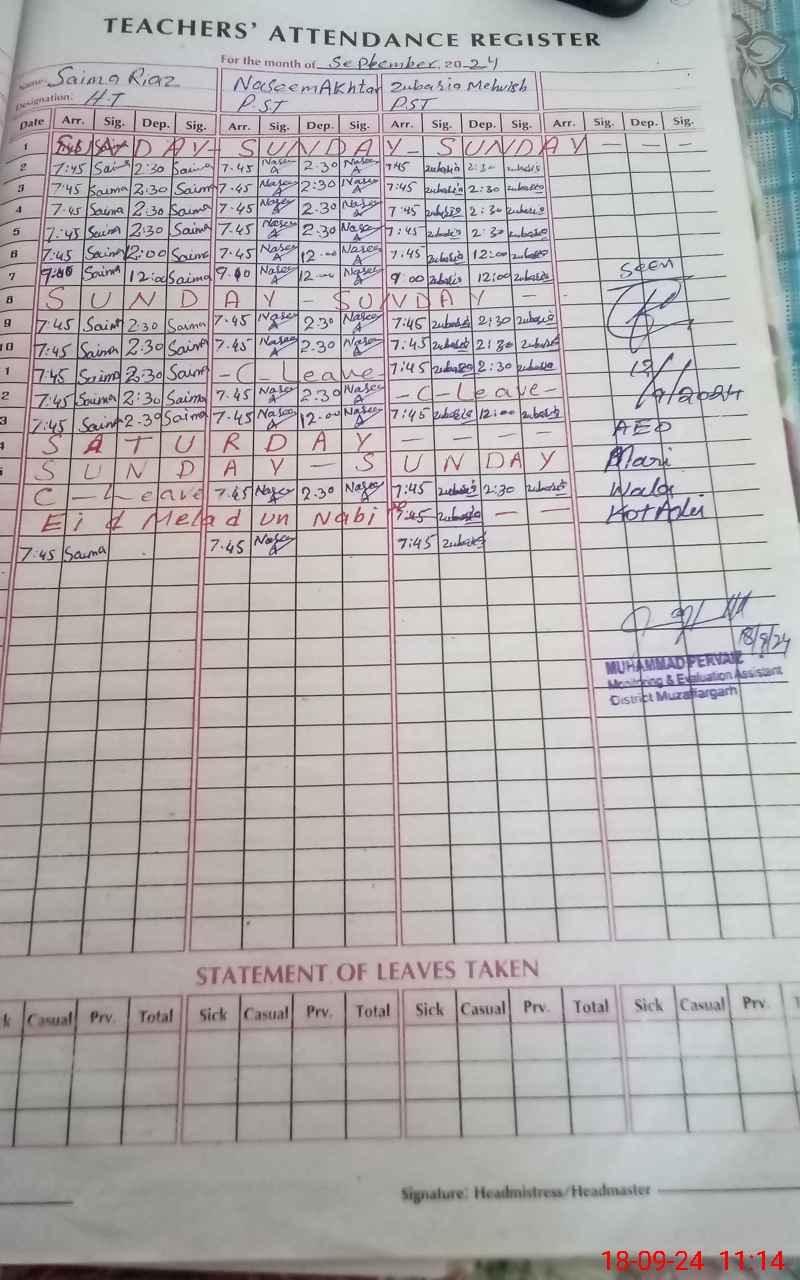 TEACHERS' ATTENDANCE REGISTER
For the month of September, 2024
Name: Saima Riaz Naseem Akhtar Zubaria Mehvish
Designation: H.T P.ST P.ST
Date Arr. Sig. Dep. Sig. Arr. Sig. Dep. Sig. Arr. Sig. Dep. Sig. Arr. Sig. Dep. Sig.
1 DAY - SUNDAY - SUNDAY - - -
2 7:45 Saima 2:30 Saima 7.45 Naseem A 2.30 Naseem 7:45 zubaria 2:30 zubaria
3 7:45 Saima 2:30 Saima 7.45 Naseem A 2:30 Naseem 7:45 zubaria 2:30 zubaria
4 7.45 Saima 2:30 Saima 7.45 Naseem A 2.30 Naseem 7:45 zubaria 2:30 zubaria
5 7:45 Saima 2:30 Saima 7.45 Naseem A 2.30 Naseem 7:45 zubaria 2:30 zubaria
6 7:45 Saima 12:00 Saima 7.45 Naseem A 12.00 Naseem 7:45 zubaria 12:00 zubaria
7 Saima 12:00 Saima 9.00 Naseem A 12 Naseem 9:00 zubaria 12:00 zubaria Seen
8 SUNDAY - SUNDAY -
9 7:45 Saima 2:30 Saima 7.45 Naseem A 2.30 Naseem 7:45 zubaria 2:30 zubaria
10 7:45 Saima 2:30 Saima 7.45 Naseem A 2.30 Naseem 7:45 zubaria 2:30 zubaria
1 7:45 Saima 2:30 Saima - C - Leave 7:45 zubaria 2:30 zubaria
2 7:45 Saima 2:30 Saima 7.45 Naseem A 2.30 Naseem - C - Leave - 12/9/2024
3 7:45 Saima 2:30 Saima 7.45 Naseem A 12.00 Naseem 7:45 zubaria 12:00 zubaria AEO
4 SATURDAY - - - -
5 SUNDAY - SUNDAY Mari
C - Leave 7.45 Naseem 2.30 Naseem 7:45 zubaria 2:30 zubaria Wala
Eid Melad un Nabi 7:45 zubaria - - Kot Adu
7:45 Saima 7.45 Naseem A 7:45 zubaria
18/9/24
MUHAMMAD PERVAIZ
Monitoring & Evaluation Assistant
District Muzaffargarh
STATEMENT OF LEAVES TAKEN
k Casual Prv. Total Sick Casual Prv. Total Sick Casual Prv. Total Sick Casual Prv. T
Signature: Headmistress/Headmaster
18-09-24 11:14